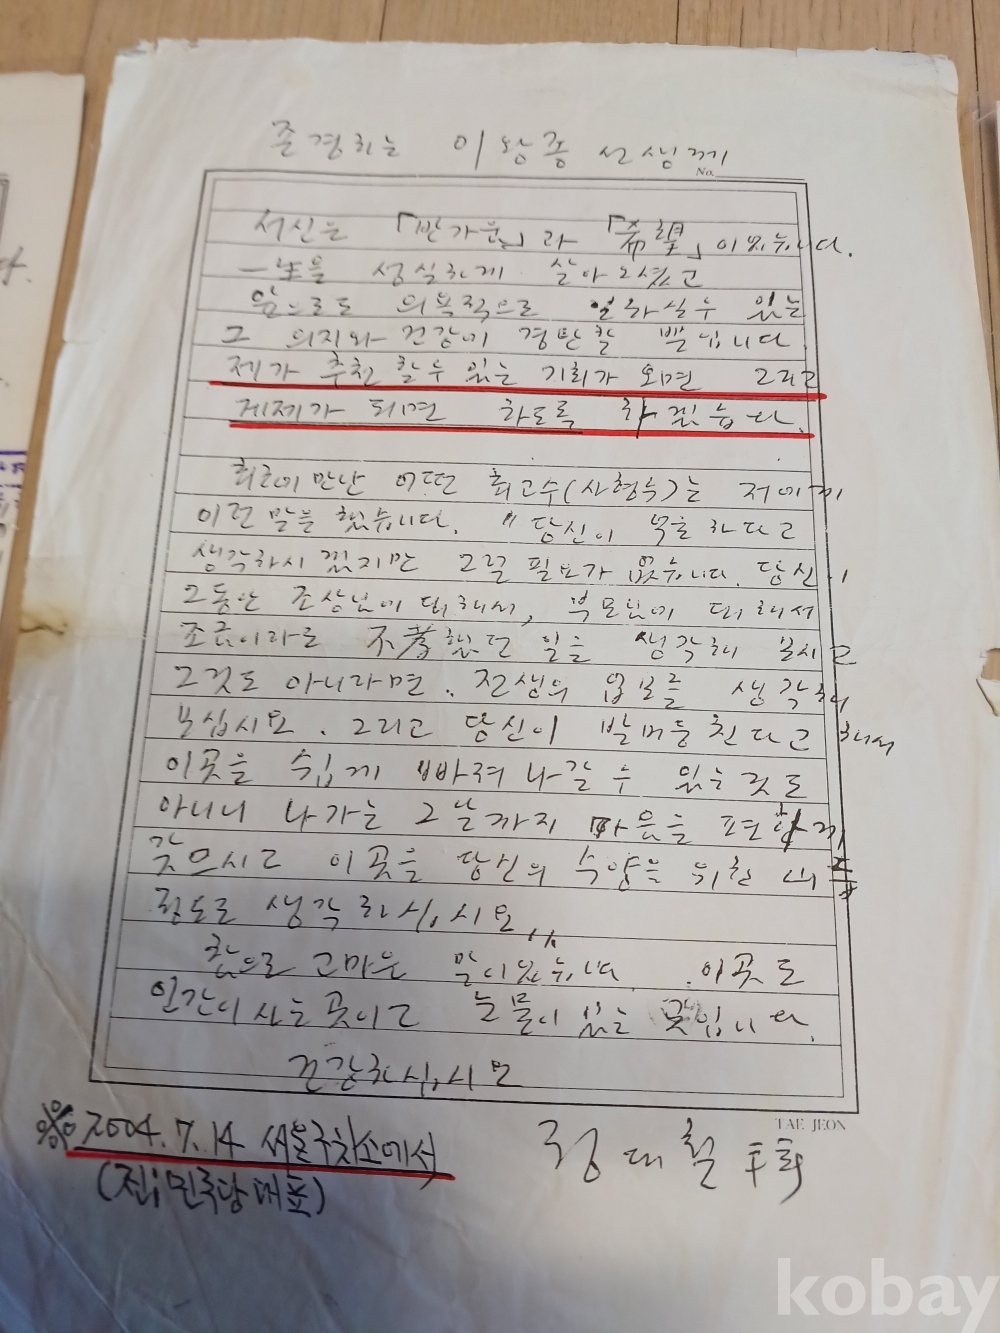 존경하는 이왕종 선생께
No.
서신은 「반가움」과 「希望」이었습니다.
一生을 성실하게 살아오셨고
앞으로도 의욕적으로 일하실 수 있는
그 의지와 건강에 경탄할 뿐입니다.
제가 추천할 수 있는 기회가 오면 그리고
제가 되면 하도록 하겠습니다.
최근에 만난 어떤 최고수(사형수)는 저에게
이런 말을 했습니다. "당신이 억울하다고
생각하시겠지만 그럴 필요가 없습니다. 당신이
그동안 조상님에 대해서, 부모님에 대해서
조금이라도 不孝했던 일을 생각해 보시고
그것도 아니라면.. 전생의 업보를 생각해
보십시요. 그리고 당신이 발버둥친다고 해서
이곳을 쉽게 빠져나갈 수 있는 것도
아니니 나가는 그날까지 마음을 편하게
갖으시고 이곳을 당신의 수양을 위한
정도로 생각하십시요"
참으로 고마운 말이었습니다. 이곳도
인간이 사는 곳이고 눈물이 있는 곳입니다.
건강하십시요
TAE JEON
※ 2004.7.14 서울구치소에서
정대철 拜
(전; 민주당대표)
kobay